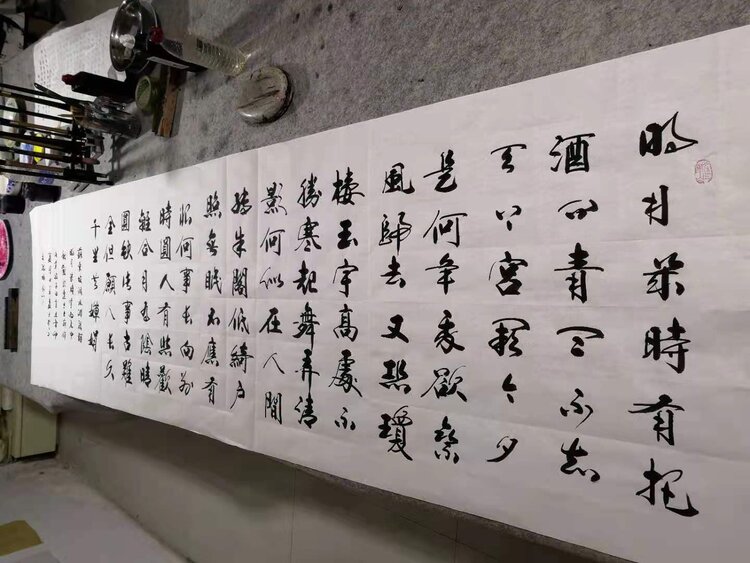 明月幾時有把
酒问青天不知
天上宮闕今夕
是何年我欲乘
風歸去又恐瓊
樓玉宇高處不
勝寒起舞弄清
影何似在人間
轉朱閣低綺户
照無眠不應有
恨何事長向别
時圓人有悲歡
離合月有陰晴
圓缺此事古難
全但願人長久
千里共嬋娟